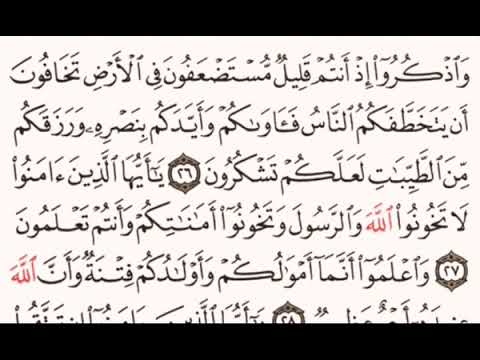 وَٱذۡكُرُوٓاْ إِذۡ أَنتُمۡ قَلِيلٞ مُّسۡتَضۡعَفُونَ فِي ٱلۡأَرۡضِ تَخَافُونَ
أَن يَتَخَطَّفَكُمُ ٱلنَّاسُ فَـَٔاوَىٰكُمۡ وَأَيَّدَكُم بِنَصۡرِهِۦ وَرَزَقَكُم
مِّنَ ٱلطَّيِّبَٰتِ لَعَلَّكُمۡ تَشۡكُرُونَ ٢٦ يَٰٓأَيُّهَا ٱلَّذِينَ ءَامَنُواْ
لَا تَخُونُواْ ٱللَّهَ وَٱلرَّسُولَ وَتَخُونُوٓاْ أَمَٰنَٰتِكُمۡ وَأَنتُمۡ تَعۡلَمُونَ
٢٧ وَٱعۡلَمُوٓاْ أَنَّمَآ أَمۡوَٰلُكُمۡ وَأَوۡلَٰدُكُمۡ فِتۡنَةٞ وَأَنَّ ٱللَّهَ